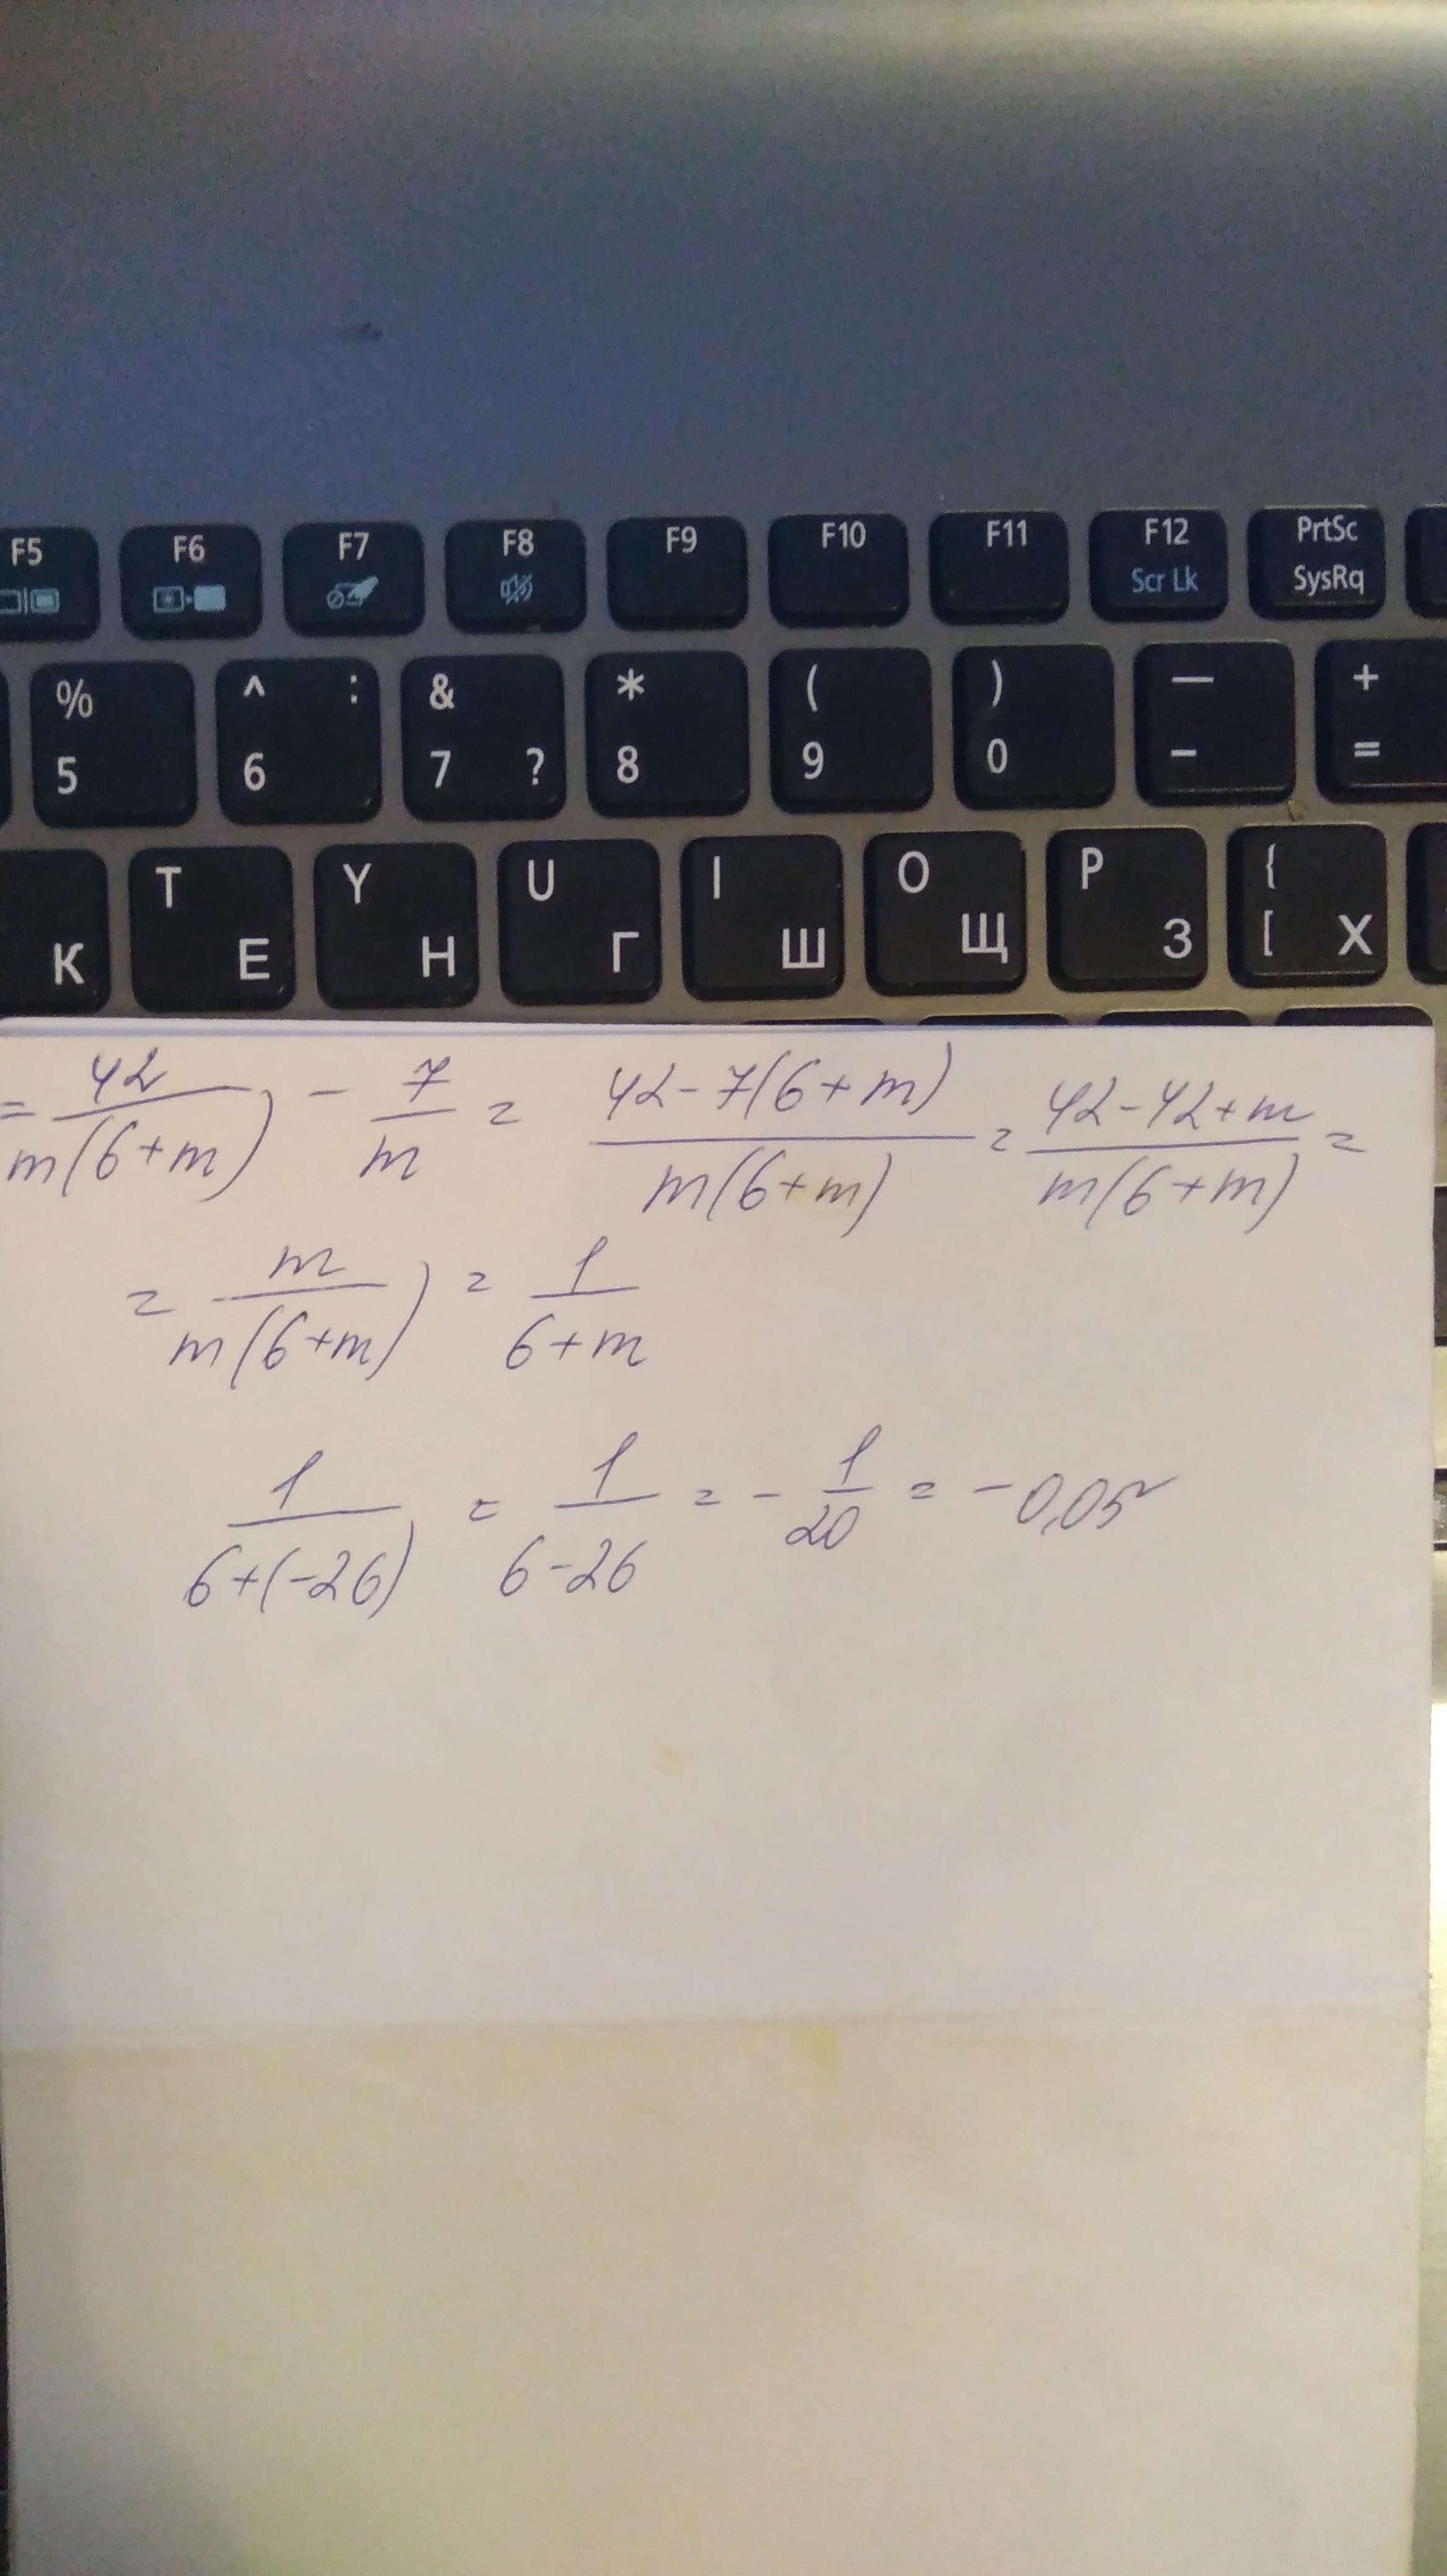 F5 F6 F7 F8 F9 F10 F11 F12 PrtSc
Scr Lk SysRq
% ^ : & * ( ) — +
5 6 7 ? 8 9 0 - =
T Y U I O P {
К Е Н Г Ш Щ З [ Х
= 42/(m(6+m)) - 7/m = (42-7(6+m))/(m(6+m)) = (42-42+m)/(m(6+m)) =
= m/(m(6+m)) = 1/(6+m)
1/(6+(-26)) = 1/(6-26) = - 1/20 = -0,05